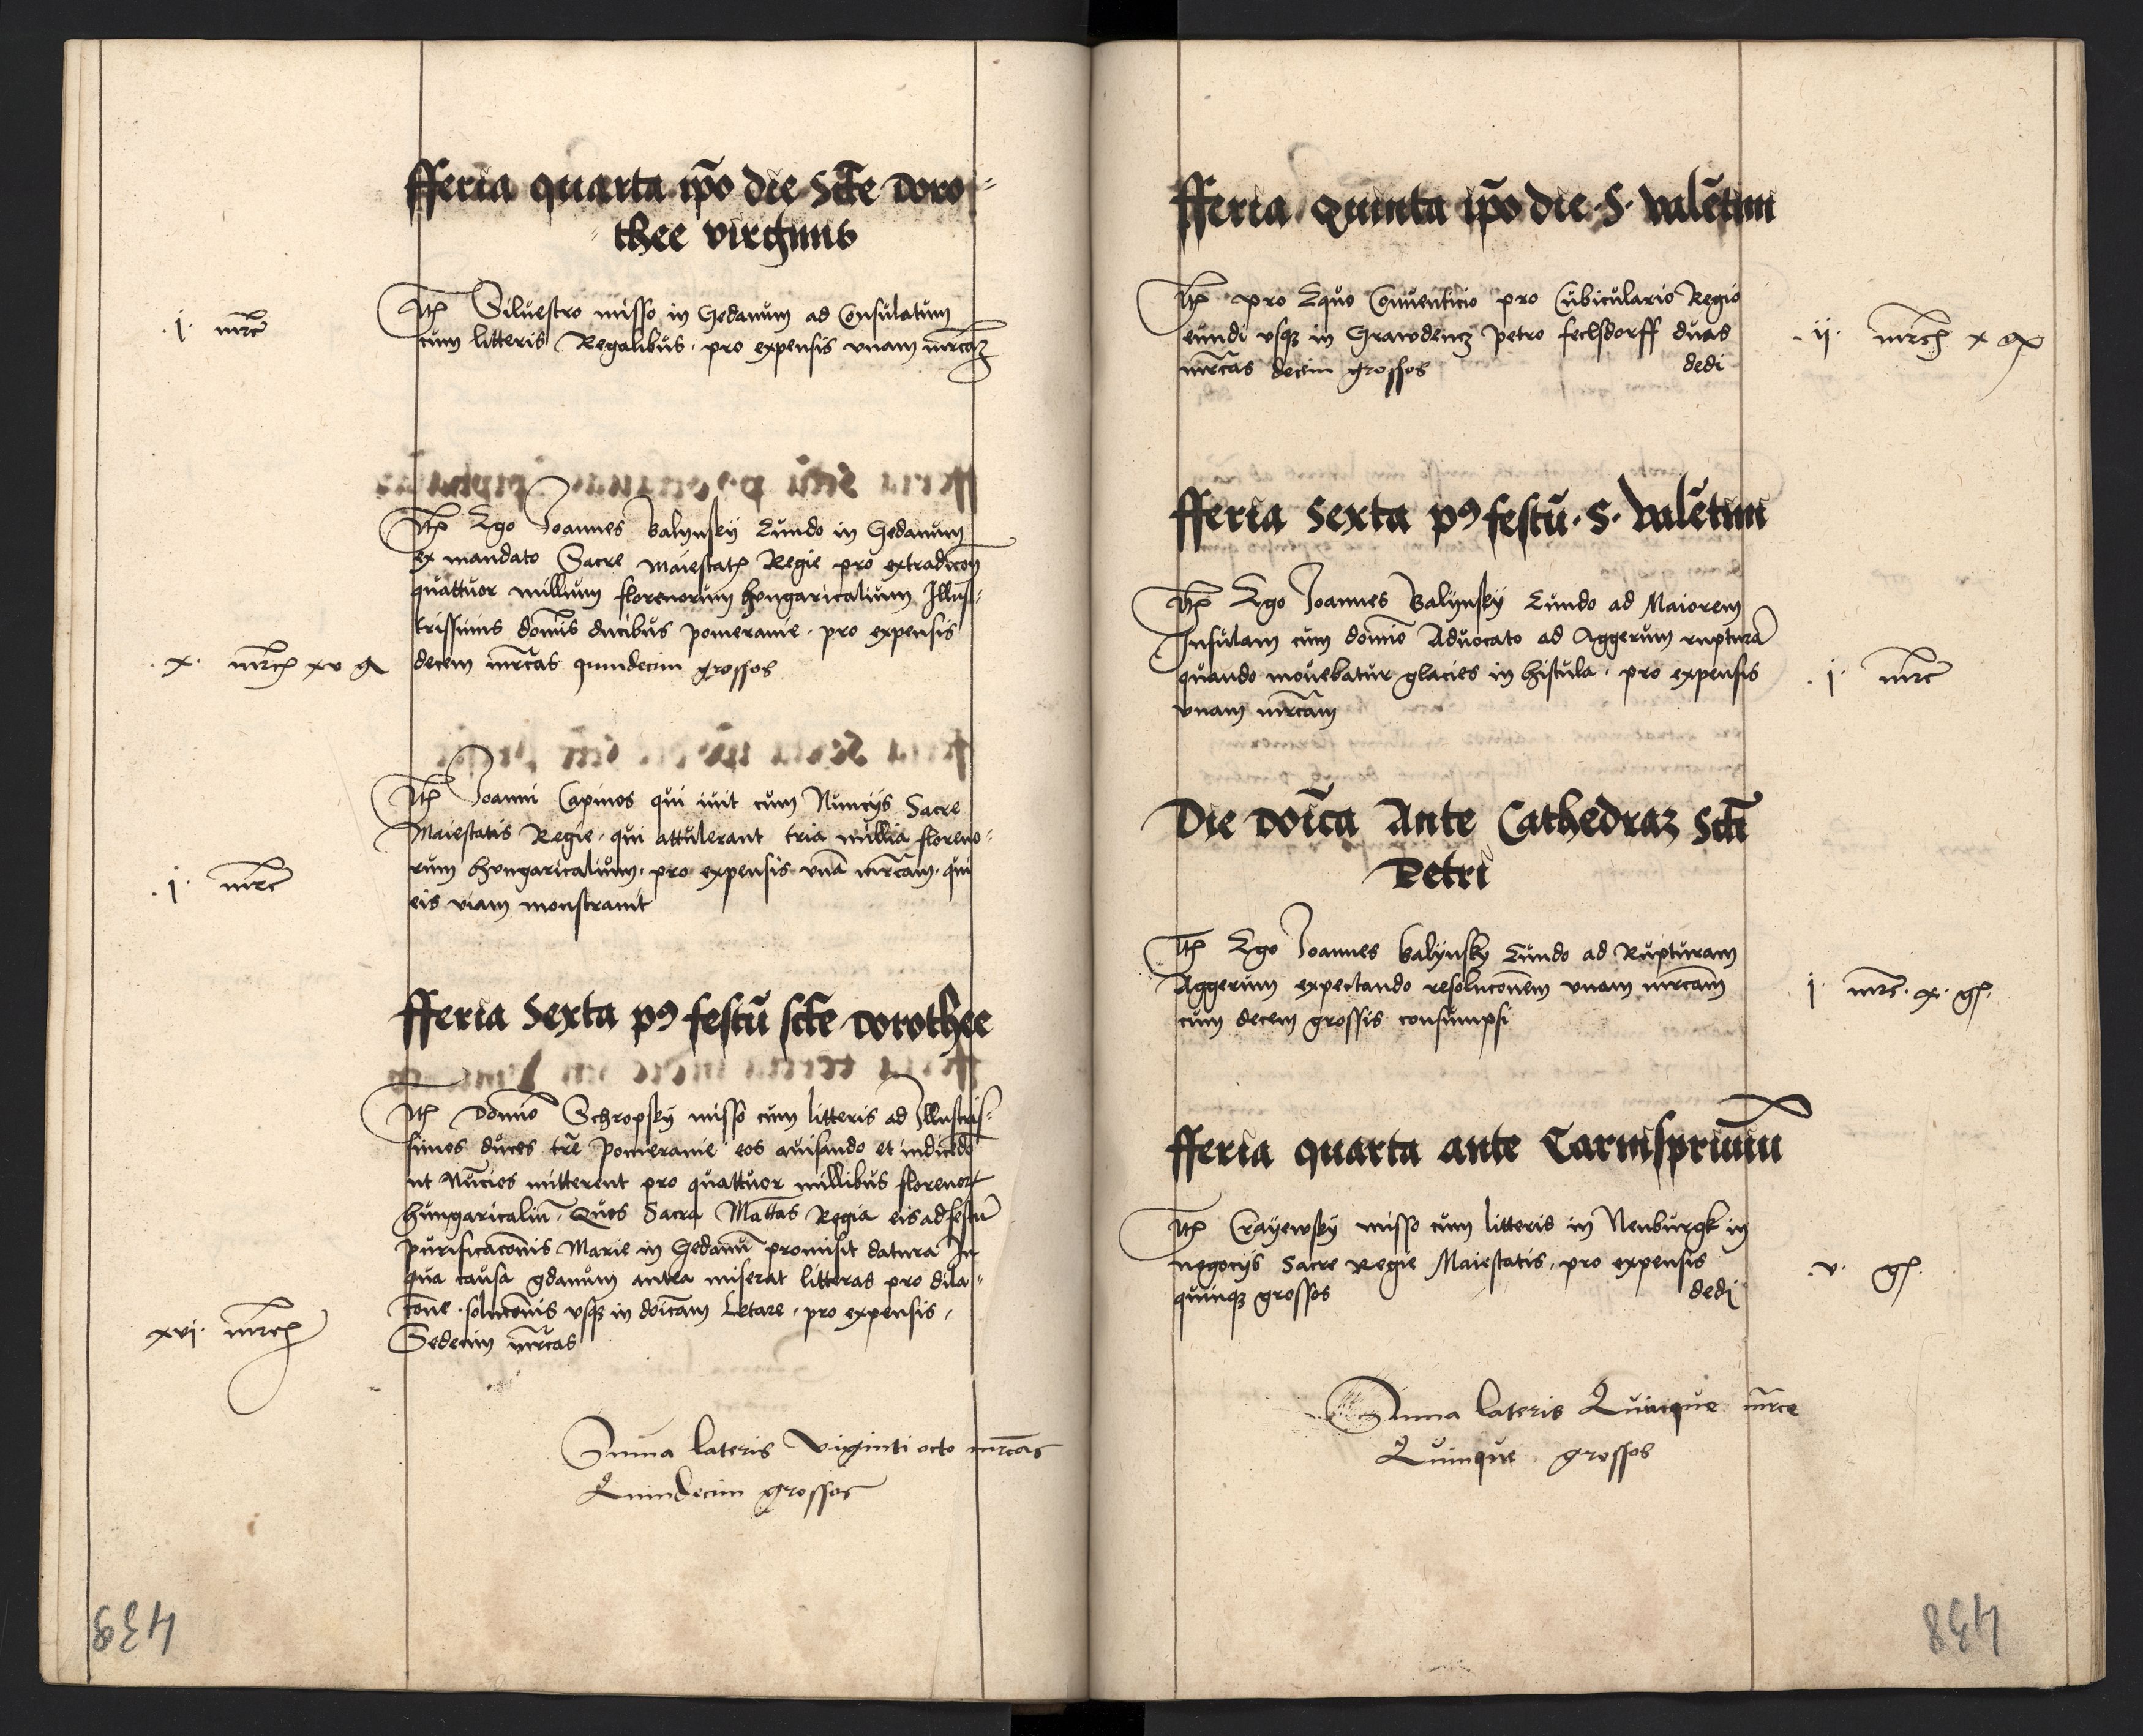 fferia quarta ip̄o die Sctē Doro=
thee virginis
.j. mrc̄
Itē Siluestro misso in Gedanum ad Consulatum
cum litteris Regalibus. pro expensis vnam mrcāz
Itē Ego Joannes Balynsky Eundo in Gedanum
ex mandato Sacre Maiestatꝭ Regie pro extradicōn
quattuor millium florenorum hungaricalium Illus=
trissimis domīs ducibus pomeranie. pro expensis
.x. mrcꝭ xv g
decem mrcās quindecim grossos
Itē Joanni Capinos qui iuit cum Nuncijs Sacre
Maiestatis Regie. qui attulerant tria millia floreno=
.j. mrc̄
rum hungaricalium. pro expensis vnā mrcām. qui
eis viam monstrauit
fferia Sexta pꝰ festū sctē Dorothee
Itē Domīo Schropsky misso cum litteris ad Illustris=
simos duces trē Pomeranie eos auisando et indicēdo
ut Nuncios mitterent pro quattuor millibus florenoꝝ
hungaricaliū. Quos Sacra Mattās Regia eis ad festū
purificacōnis Marie in Gedanū promisit datura In
qua causa gdanum antea miserat litteras pro dila=
cōne. solucōnis vsqꝫ in doīcam Letare. pro expensis.
xvj. mrcꝭ
Sedecim mrcās
Suma lateris Viginti octo mrcās
Quindecim grossos
439
fferia Quinta ip̄o die. S. Valētini
Itē pro Equo Conuenticio pro Cubiculario Regio
eundi vsqꝫ in Grawdencz Petro feclsdorff duas
.ij. mrcꝭ x g
mrcās decem grossos dedi
fferia Sexta pꝰ festū. S. Valētini
Itē Ego Joannes Balynsky Eundo ad Maiorem
Insulam cum domīo Aduocato ad Aggerum rupturā
quando mouebatur glacies in histula. pro expensis
.j. mrc̄
vnam mrcām
Die Doīca Ante Cathedraz Sctī
Petri
Itē Ego Joannes Balynsky Eundo ad Rupturam
Aggerum expectando resolucōnem vnam mrcām
j. mrc̄. x. gꝭ.
cum decem grossis consumpsi
fferia quarta ante Carnispriuiū
Itē Crayewsky misso cum litteris in Neuburgk in
negocijs Sacre Regie Maiestatis. pro expensis
.v. gꝭ.
quinqꝫ grossos dedi
Suma lateris Quinque mrce
Quinque grossos
438